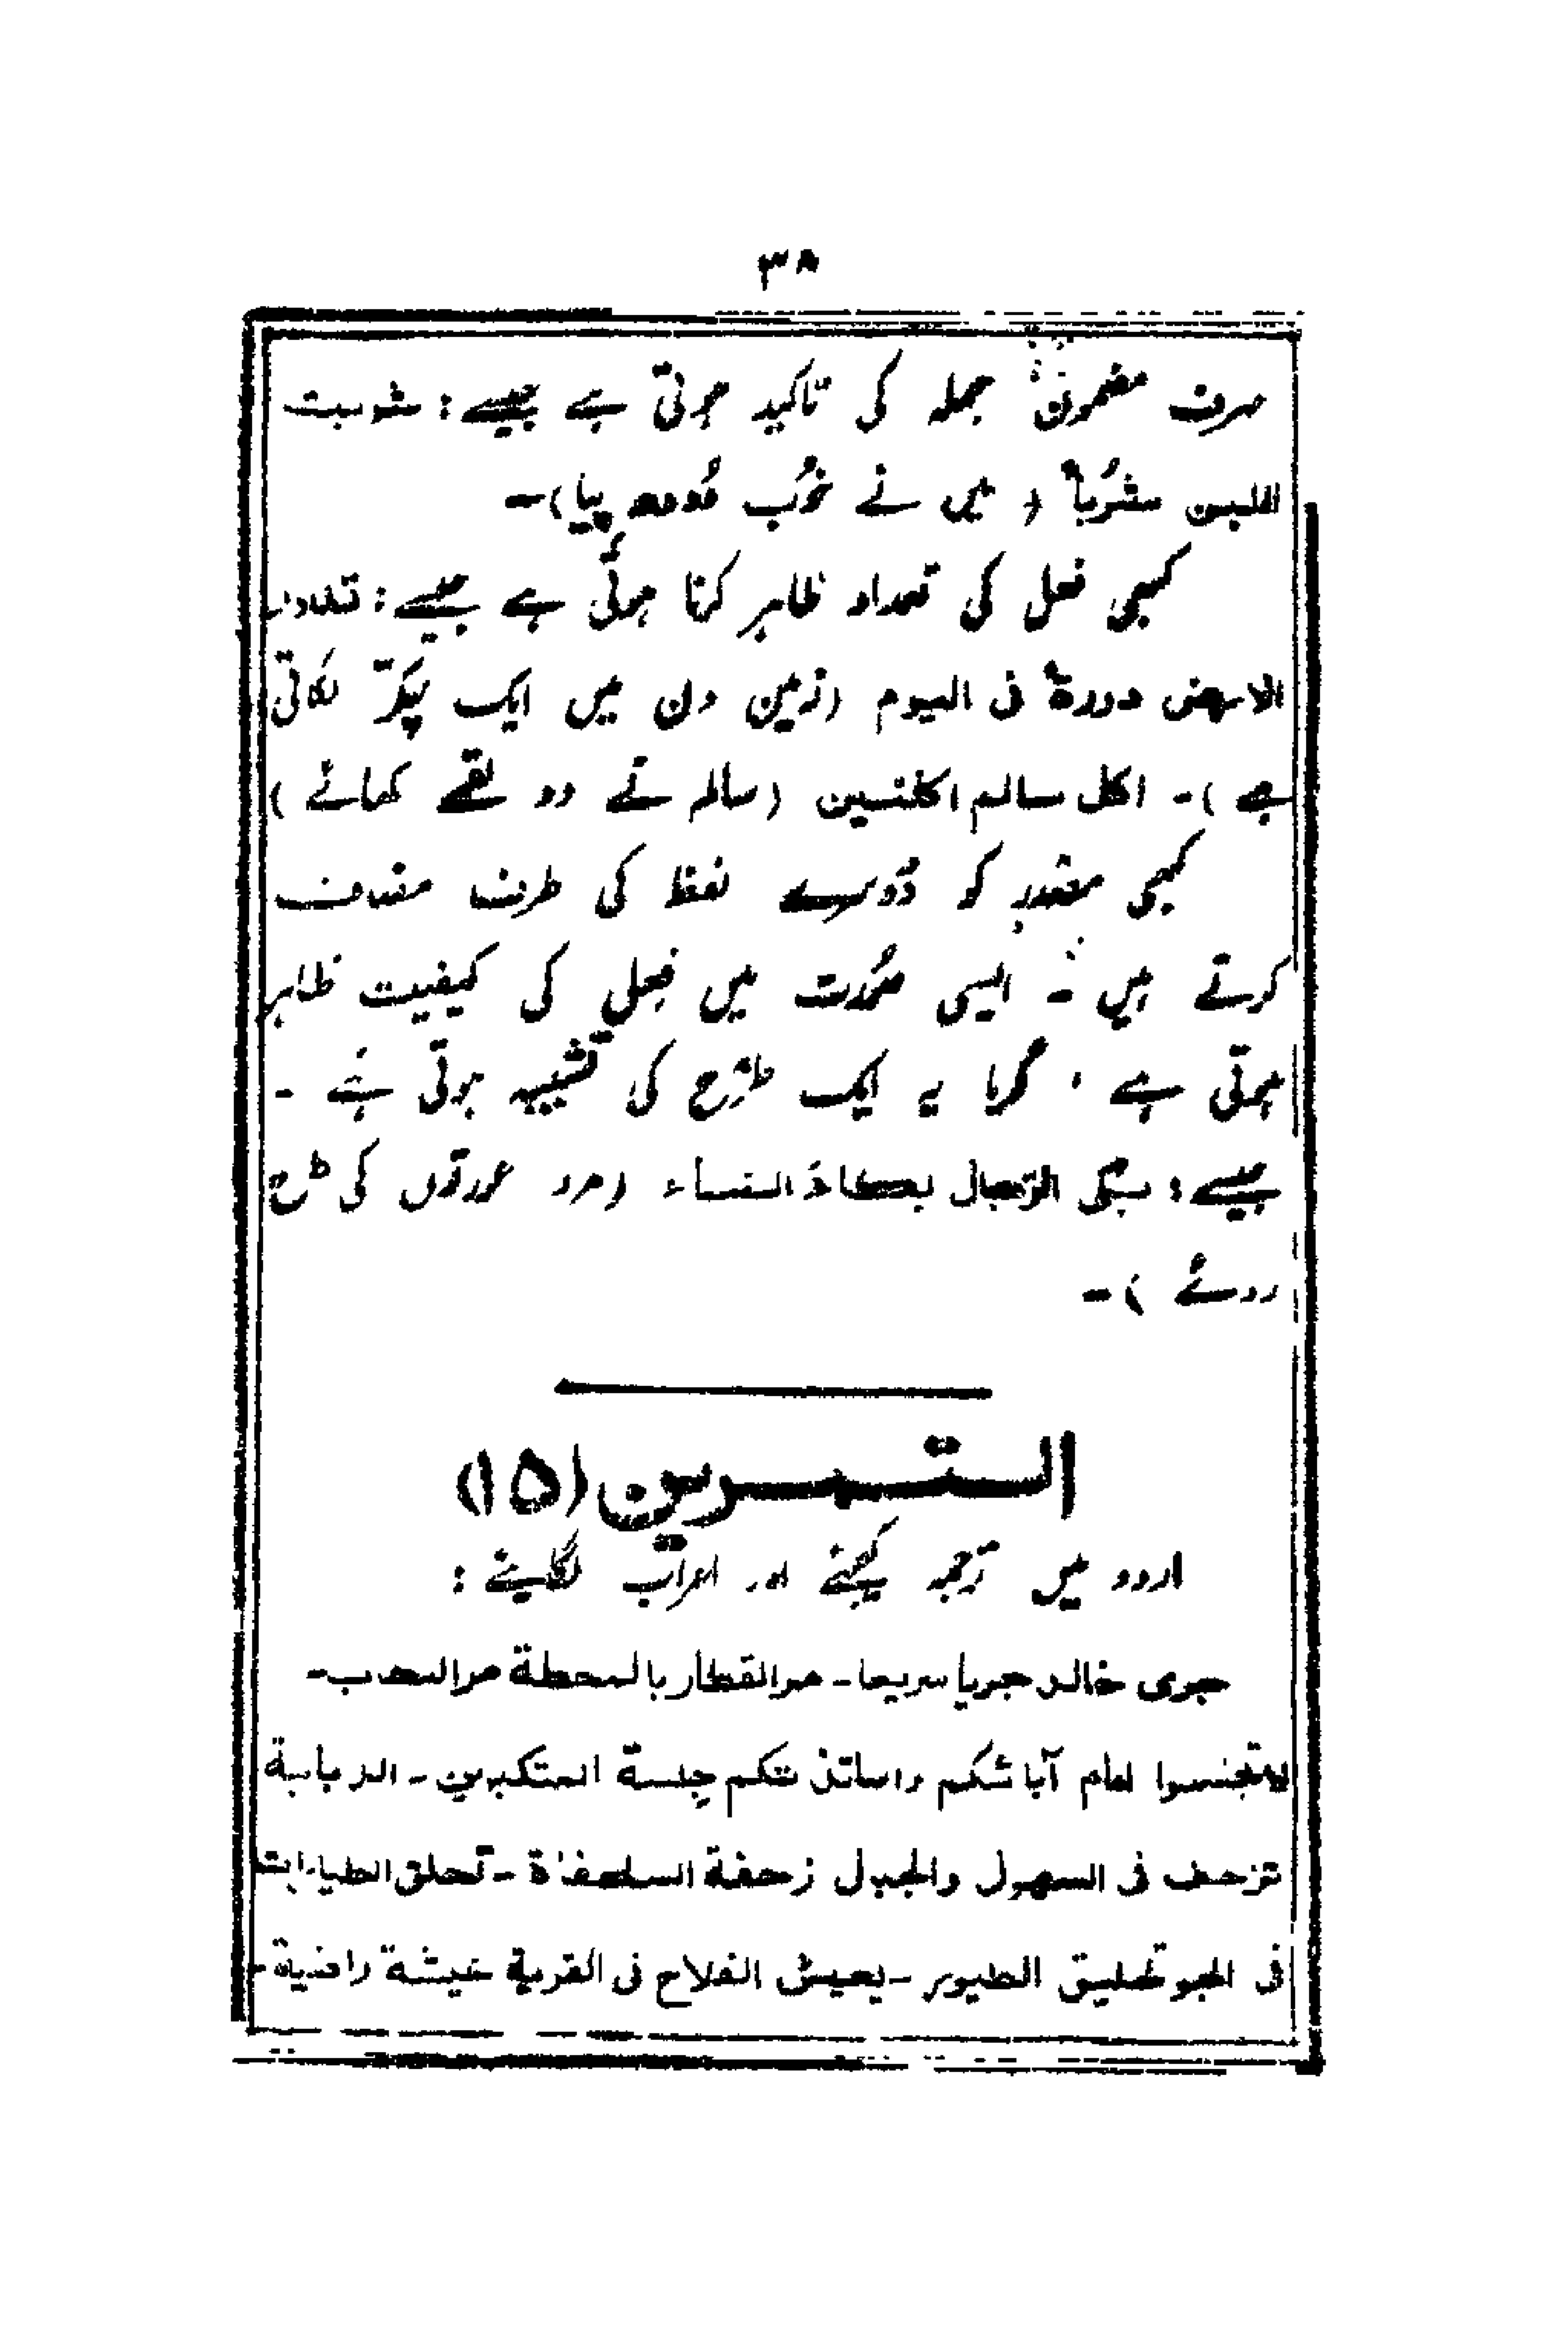 ۳۸
صرف مضمون جملہ کی تاکید ہوتی ہے جیسے : شربت
اللبن شرباً ( میں نے خوب دودھ پیا)۔
کبھی فعل کی تعداد ظاہر کرنا ہوتی ہے جیسے : تدور
الارض دورة فی الیوم (زمین دن میں ایک چکّر لگاتی
ہے )۔ اکل سالم اکلتین (سالم نے دو لقمے کھائے )
کبھی مصدر کو دوسرے لفظ کی طرف مضاف
کرتے ہیں ۔ ایسی صورت میں فعل کی کیفیت ظاہر
ہوتی ہے ، گویا یہ ایک طرح کی تشبیہ ہوتی ہے ۔
جیسے : بکی الرجال بکاءَ النساء (مرد عورتوں کی طرح
روئے )۔
التمرین (۱۵)
اردو میں ترجمہ کیجئے اور اعراب لگایئے :
جری خالد جریا سریعا۔ مر القطار بالمحطة مر السحاب۔
لا تجلسوا امام آبائکم واساتذتکم جِلسة المتکبرین ۔ الدبابة
تزحف فی السهول والجبال زحفة السلحفاة ۔ تحلق الطیارات
فی الجو تحلیق الطیور ۔ یعیش الفلاح فی القریة عیشة راضیة۔